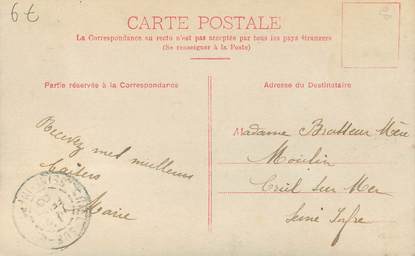 6€
CARTE POSTALE
La Correspondance au recto n'est pas acceptée par tous les pays étrangers
(Se renseigner à la Poste)
Partie réservée à la Correspondance
Adresse du Destinataire
Recevez mes meilleurs
baisers
Marie
Madame Brasseur Mère
Moulin
Criel sur Mer
Seine Infre